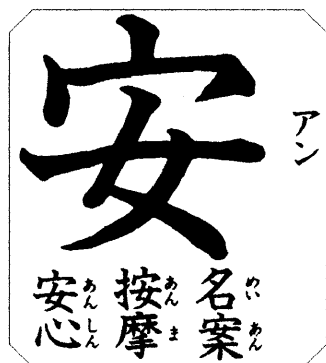 安
アン
名案
めいあん
按摩
あんま
安心
あんしん